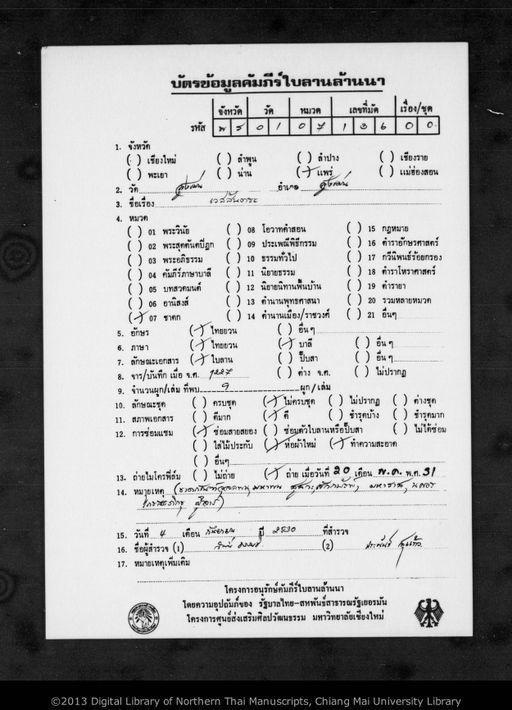 บัตรข้อมูลคัมภีร์ใบลานล้านนา
จังหวัด วัด หมวด เลขที่มัด เรื่อง/ชุด
รหัส พ ร 0 1 0 7 1 3 6 0 0
1. จังหวัด
( ) เชียงใหม่ ( ) ลำพูน ( ) ลำปาง ( ) เชียงราย
( ) พะเยา ( ) น่าน (/) แพร่ ( ) แม่ฮ่องสอน
2. วัด สูงเม่น อำเภอ สูงเม่น
3. ชื่อเรื่อง เวสสันตระ
4. หมวด
( ) 01 พระวินัย ( ) 08 โอวาทคำสอน ( ) 15 กฎหมาย
( ) 02 พระสุตตันตปิฎก ( ) 09 ประเพณีพิธีกรรม ( ) 16 ตำราอักษรศาสตร์
( ) 03 พระอภิธรรม ( ) 10 ธรรมทั่วไป ( ) 17 กวีนิพนธ์ร้อยกรอง
( ) 04 คัมภีร์ภาษาบาลี ( ) 11 นิยายธรรม ( ) 18 ตำราโหราศาสตร์
( ) 05 บทสวดมนต์ ( ) 12 นิยายนิทานพื้นบ้าน ( ) 19 ตำรายา
( ) 06 อานิสงส์ ( ) 13 ตำนานพุทธศาสนา ( ) 20 รวมหลายหมวด
(/) 07 ชาดก ( ) 14 ตำนานเมือง/ราชวงศ์ ( ) 21 อื่นๆ
5. อักษร (/) ไทยยวน ( ) อื่นๆ
6. ภาษา (/) ไทยยวน (/) บาลี ( ) อื่นๆ
7. ลักษณะเอกสาร (/) ใบลาน ( ) ปั๊บสา ( ) อื่นๆ
8. จาร/บันทึก เมื่อ จ.ศ. ( ) ต่าง จ.ศ. ( ) ไม่ปรากฏ
9. จำนวนผูก/เล่ม ที่พบ 9 ผูก/เล่ม
10. ลักษณะชุด ( ) ครบชุด (/) ไม่ครบชุด ( ) ไม่ปรากฏ ( ) ต่างชุด
11. สภาพเอกสาร ( ) ดีมาก (/) ดี ( ) ชำรุดบ้าง ( ) ชำรุดมาก
12. การซ่อมแซม (/) ซ่อมสายสยอง ( ) ซ่อมตัวใบลานหรือปั๊บสา ( ) ไม่ได้ซ่อม
( ) ใส่ไม้ประกับ (/) ห่อผ้าใหม่ (/) ทำความสะอาด
( ) อื่นๆ
13. ถ่ายไมโครฟิล์ม ( ) ไม่ถ่าย (/) ถ่าย เมื่อวันที่ 20 เดือน พ.ค. พ.ศ. 31
14. หมายเหตุ
15. วันที่ 4 เดือน กันยายน ปี 2530 ที่สำรวจ
16. ชื่อผู้สำรวจ (1) (2)
17. หมายเหตุเพิ่มเติม
โครงการอนุรักษ์คัมภีร์ใบลานล้านนา
โดยความอุปถัมภ์ของ รัฐบาลไทย-สหพันธ์สาธารณรัฐเยอรมัน
โครงการศูนย์ส่งเสริมศิลปวัฒนธรรม มหาวิทยาลัยเชียงใหม่
©2013 Digital Library of Northern Thai Manuscripts, Chiang Mai University Library